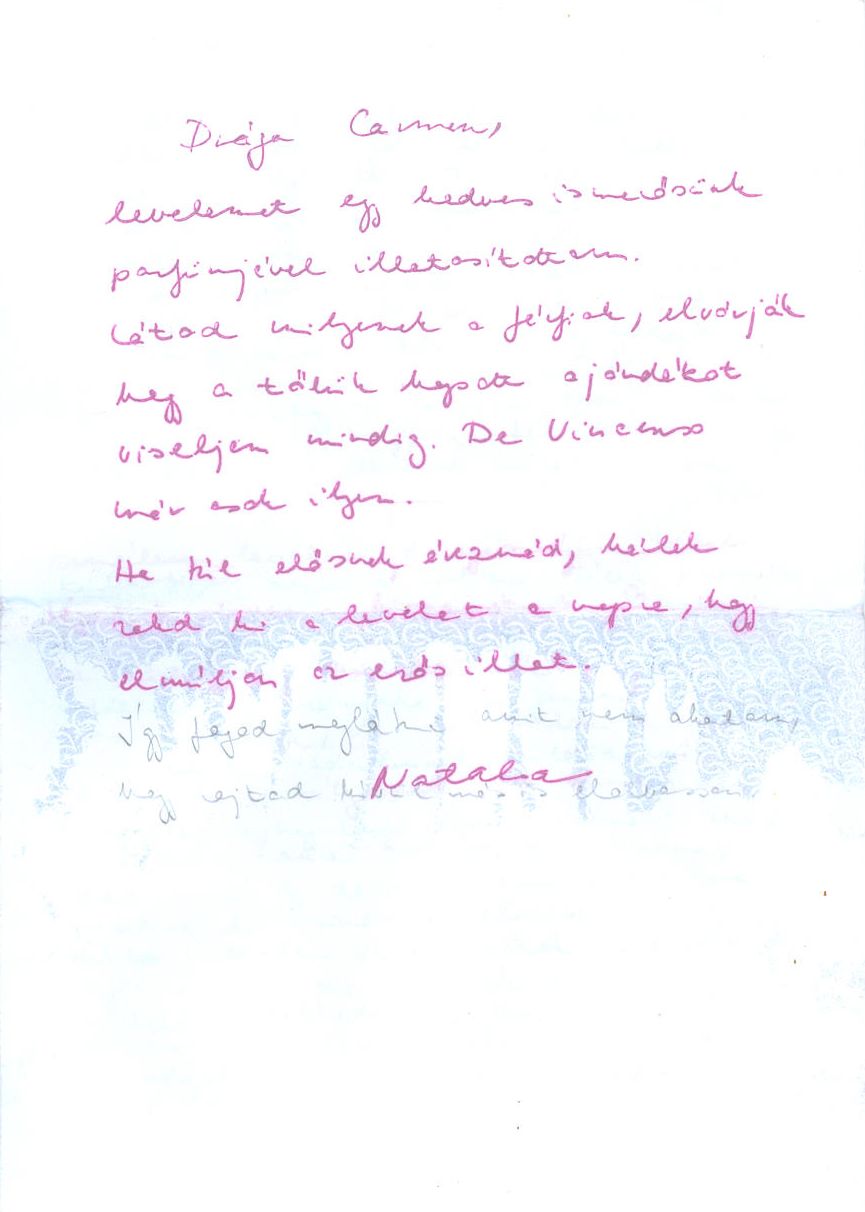 Drága Carmen,
levelemet egy kedves ismerősünk
parfümjével illatosítottam.
Látod milyenek a férfiak, elvárják
hogy a tőlük kapott ajándékot
viseljem mindig. De Vincenso
már csak ilyen.
Ha túl erősnek éreznéd, kérlek
rakd ki a levelet a napra, hogy
elmúljon az erős illat.
Így fogod meglátni amit nem akartam,
Natalia
hogy rajtad kívül más is elolvasson.